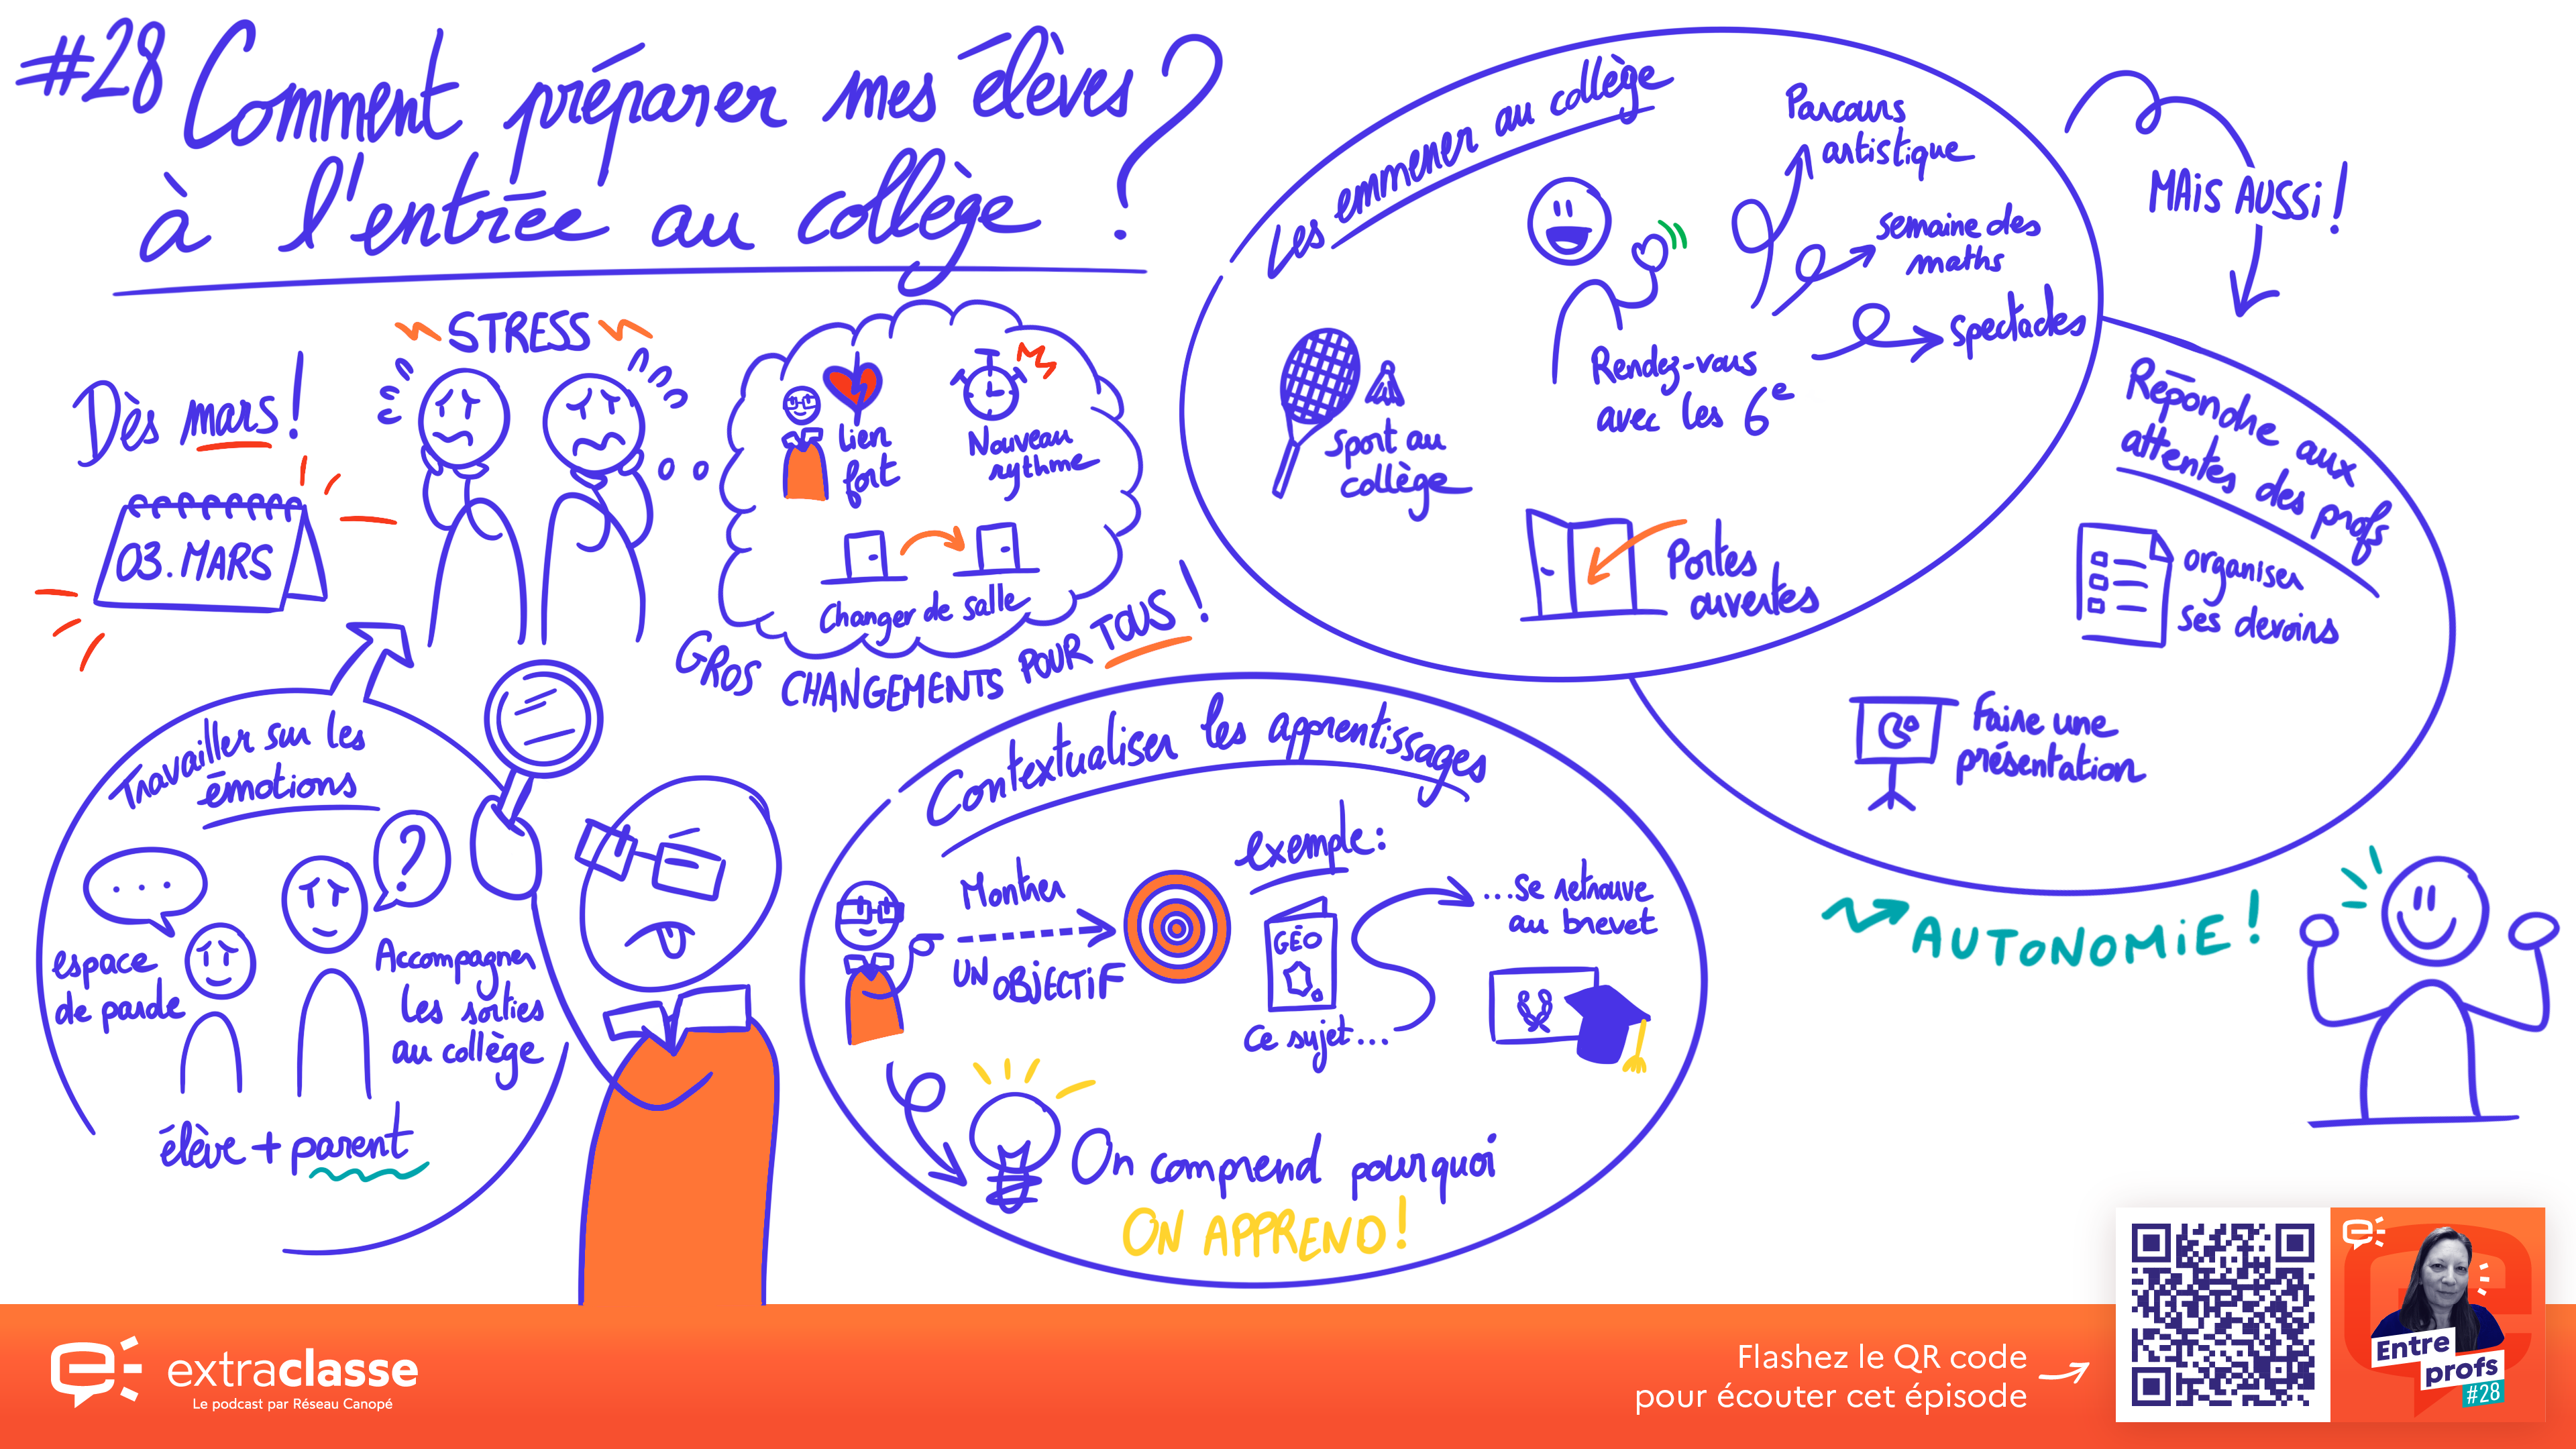 #28 Comment préparer mes élèves
à l'entrée au collège ?
Dès mars !
03. MARS
STRESS
lien
fort
Nouveau
rythme
Changer de salle
GROS CHANGEMENTS POUR TOUS !
Travailler sur les
émotions
...
?
espace
de parole
Accompagner
les sorties
au collège
élève + parent
Contextualiser les apprentissages
Montrer
UN OBJECTIF
exemple :
GÉO
Ce sujet...
...se retrouve
au brevet
On comprend pourquoi
ON APPREND !
Les emmener au collège
Parcours
artistique
semaine des
maths
spectacles
Rendez-vous
avec les 6e
Sport au
collège
Portes
ouvertes
MAIS AUSSI !
Répondre aux
attentes des profs
organiser
ses devoirs
Faire une
présentation
AUTONOMIE !
extraclasse
Le podcast par Réseau Canopé
Flashez le QR code
pour écouter cet épisode
Entre
profs
#28